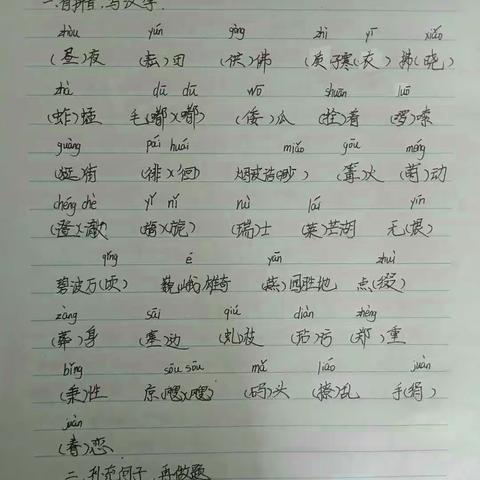 一.看拼音,写汉字.
zhòu yún gòng zhì yī xiǎo
(昼)夜 (耘)田 (供)佛 (质)寒(衣) 拂(晓)
zhà dū dū wō shuān luō
(蚱)蜢 毛(嘟)(嘟) (倭)瓜 (拴)着 (啰)嗦
guàng pái huái miǎo gōu méng
(逛)街 (徘)(徊) 烟波浩(眇) (篝)火 (萌)动
chéng chè yǐ nǐ ruì lái yín
(澄)(澈) (旖)(旎) (瑞)士 (莱)芒湖 无(垠)
qǐng é yān zhuì
碧波万(顷) 巍(峨)雄奇 (燕)园胜地 点(缀)
zàng sāi qiú diàn zhèng
(葬)身 (塞)动 (虬)枝 (玷)污 (郑)重
bǐng sōu sōu mǎ liáo juàn
(秉)性 凉(嗖)(嗖) (码)头 (撩)乱 手(绢)
juàn
(眷)恋
二.补充句子,再做题